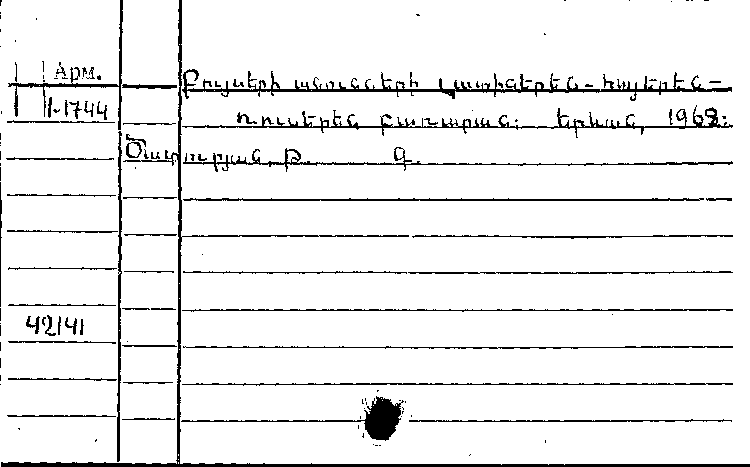 Арм.
Բույսերի անունների լատիներեն - հայերեն -
1-1744
ռուսերեն բառարան: Երևան, 1968:
Ծատուրյան, Թ. Գ.
42141